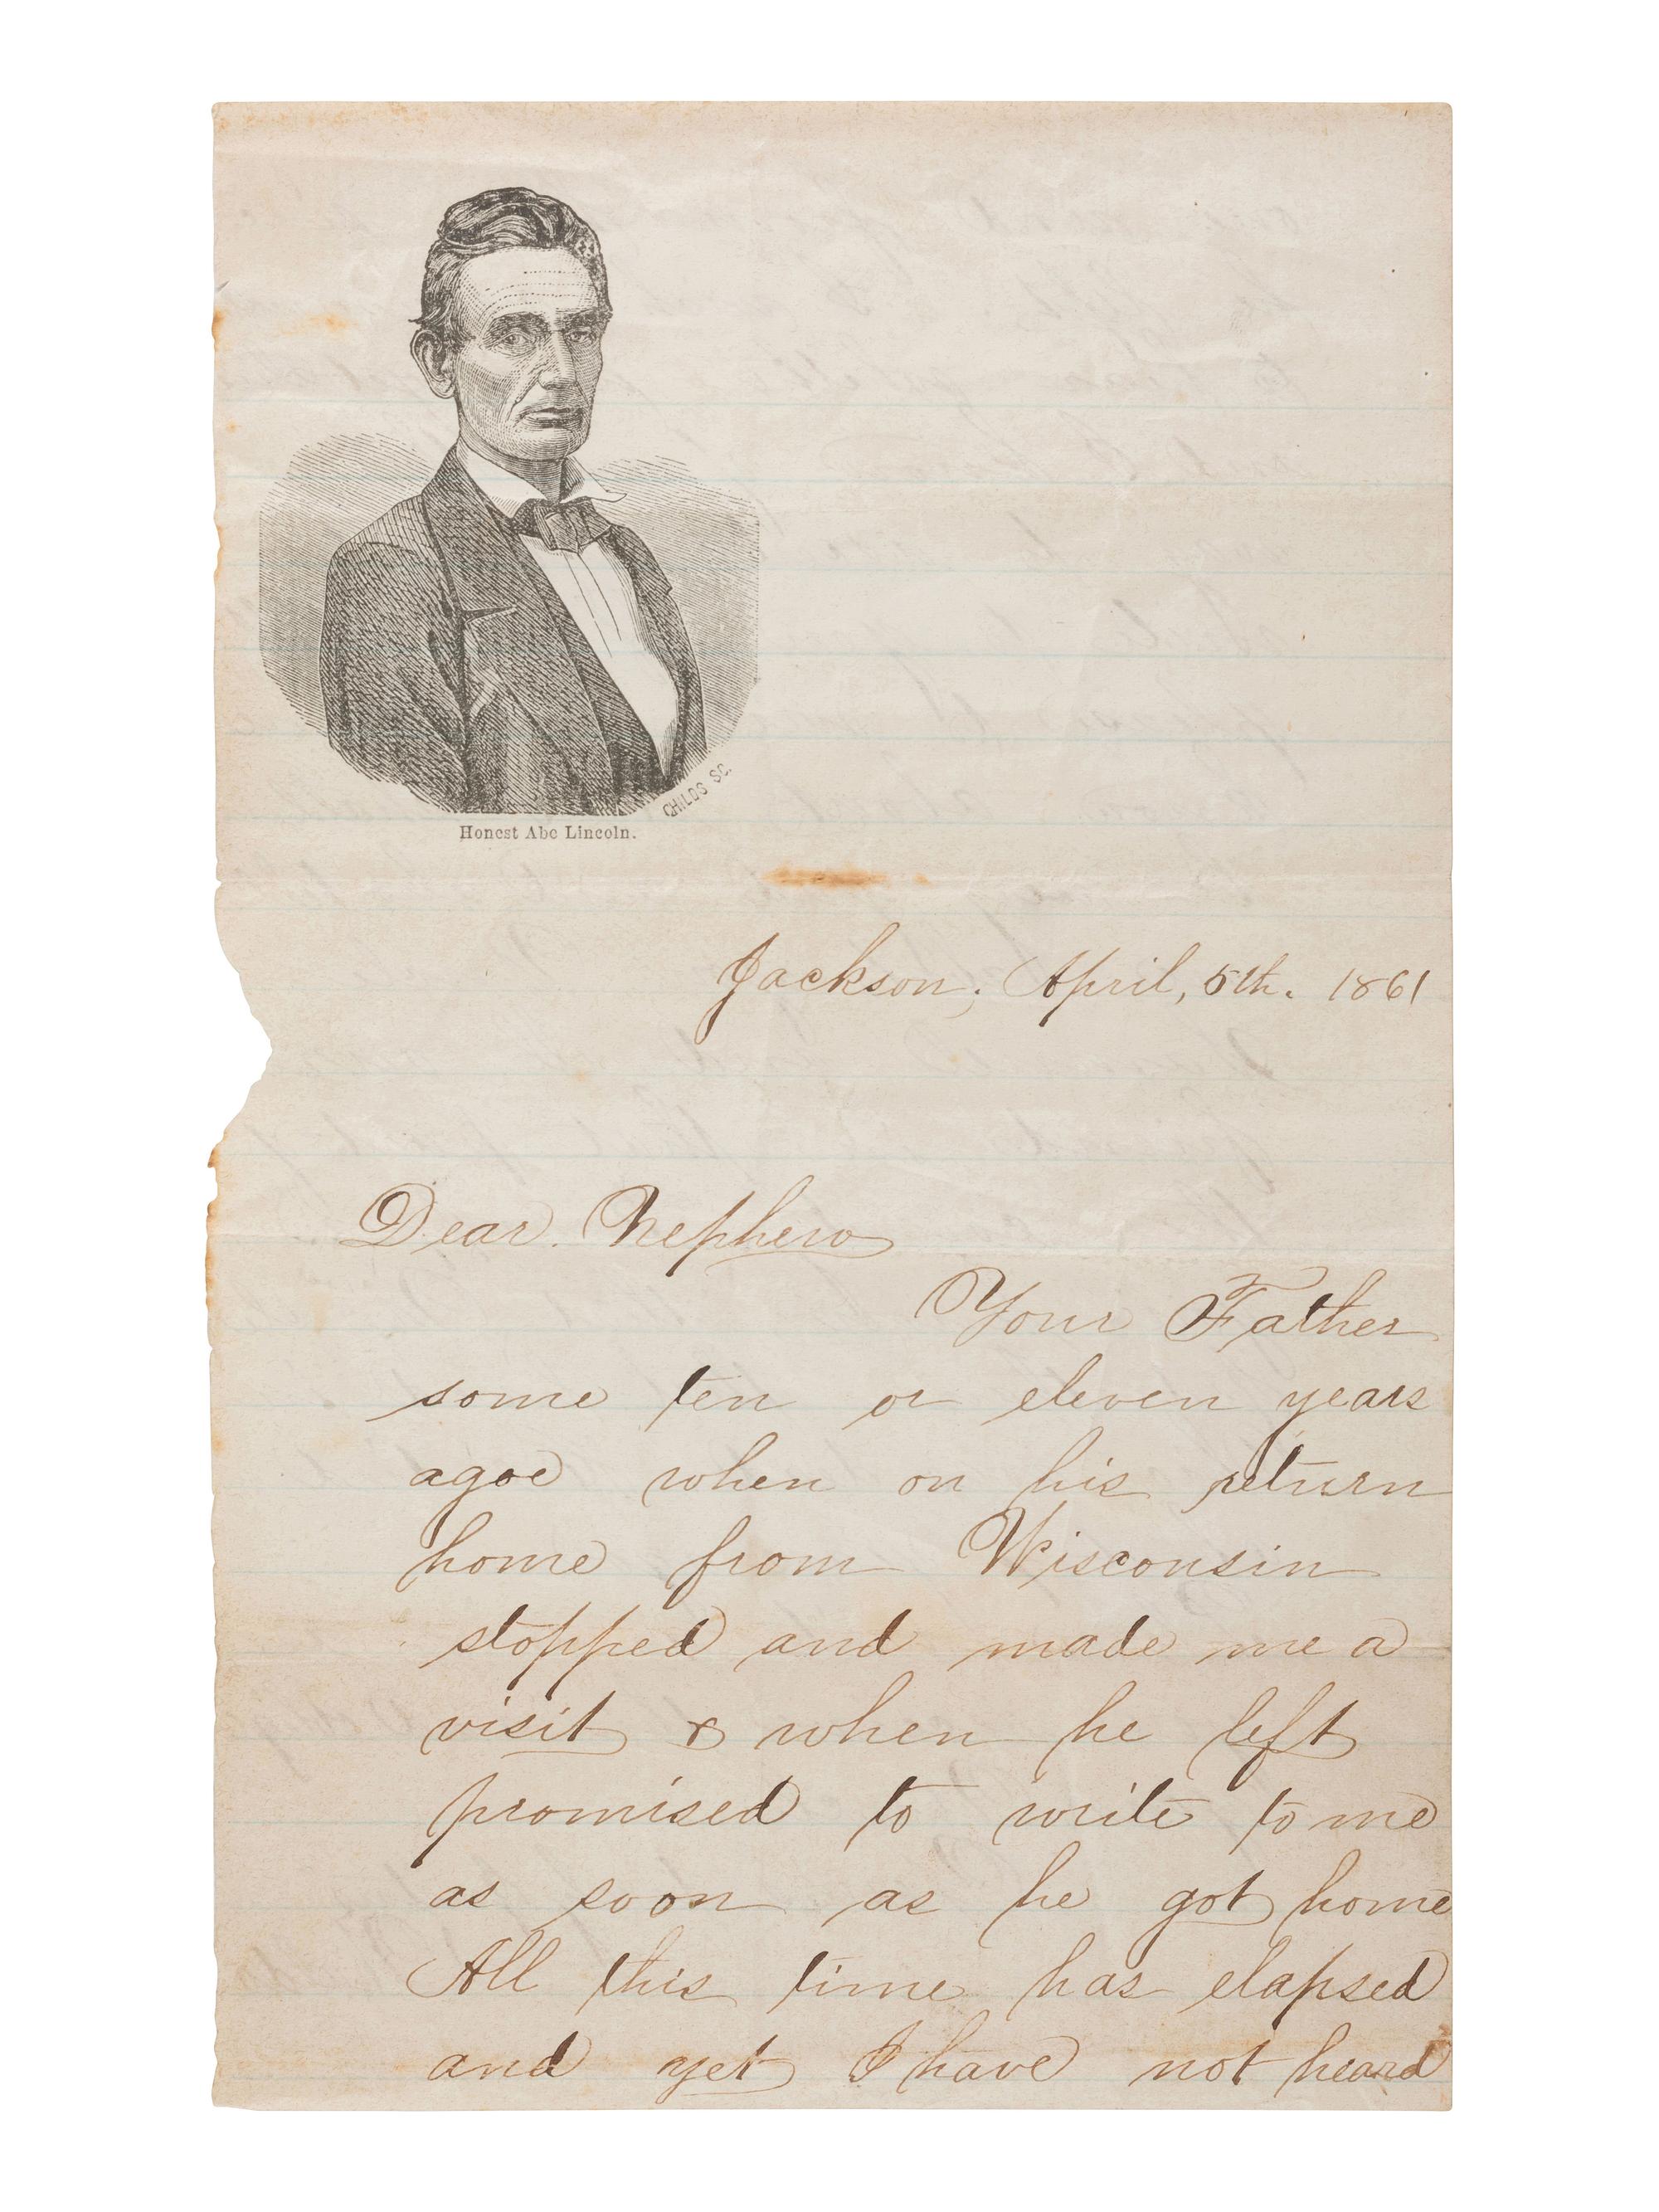 CHILDS SC.
Honest Abe Lincoln.
Jackson, April, 5th. 1861
Dear Nephew
Your Father
some ten or eleven years
agoe when on his return
home from Wisconsin
stopped and made me a
visit & when he left
promised to write to me
as soon as he got home
All this time has elapsed
and yet I have not heard